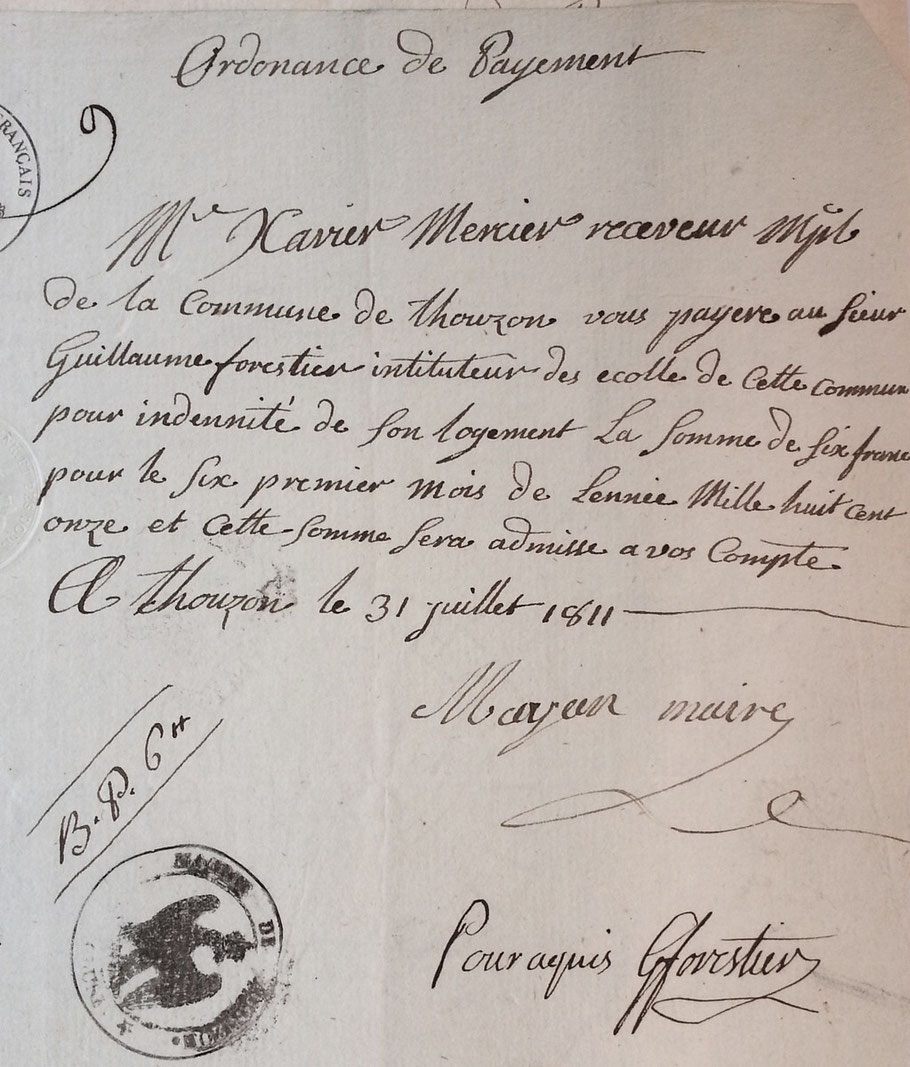 Ordonance de Payement
FRANÇAIS
9
Mr Xavier Mercier receveur Mpl
de la Commune de thouzon vous payere au sieur
Guillaume forestier intituteur des ecolle de Cette Commun
pour indennité de son logement La somme de six franc
pour le six premier mois de Lennée Mille huit Cent
onze et Cette somme sera admisse a vos Compte
A thouzon le 31 juillet 1811
Mayan maire
B. P. 6 tt
MAIRIE DE THOUZON
Pour aquis Gforestier